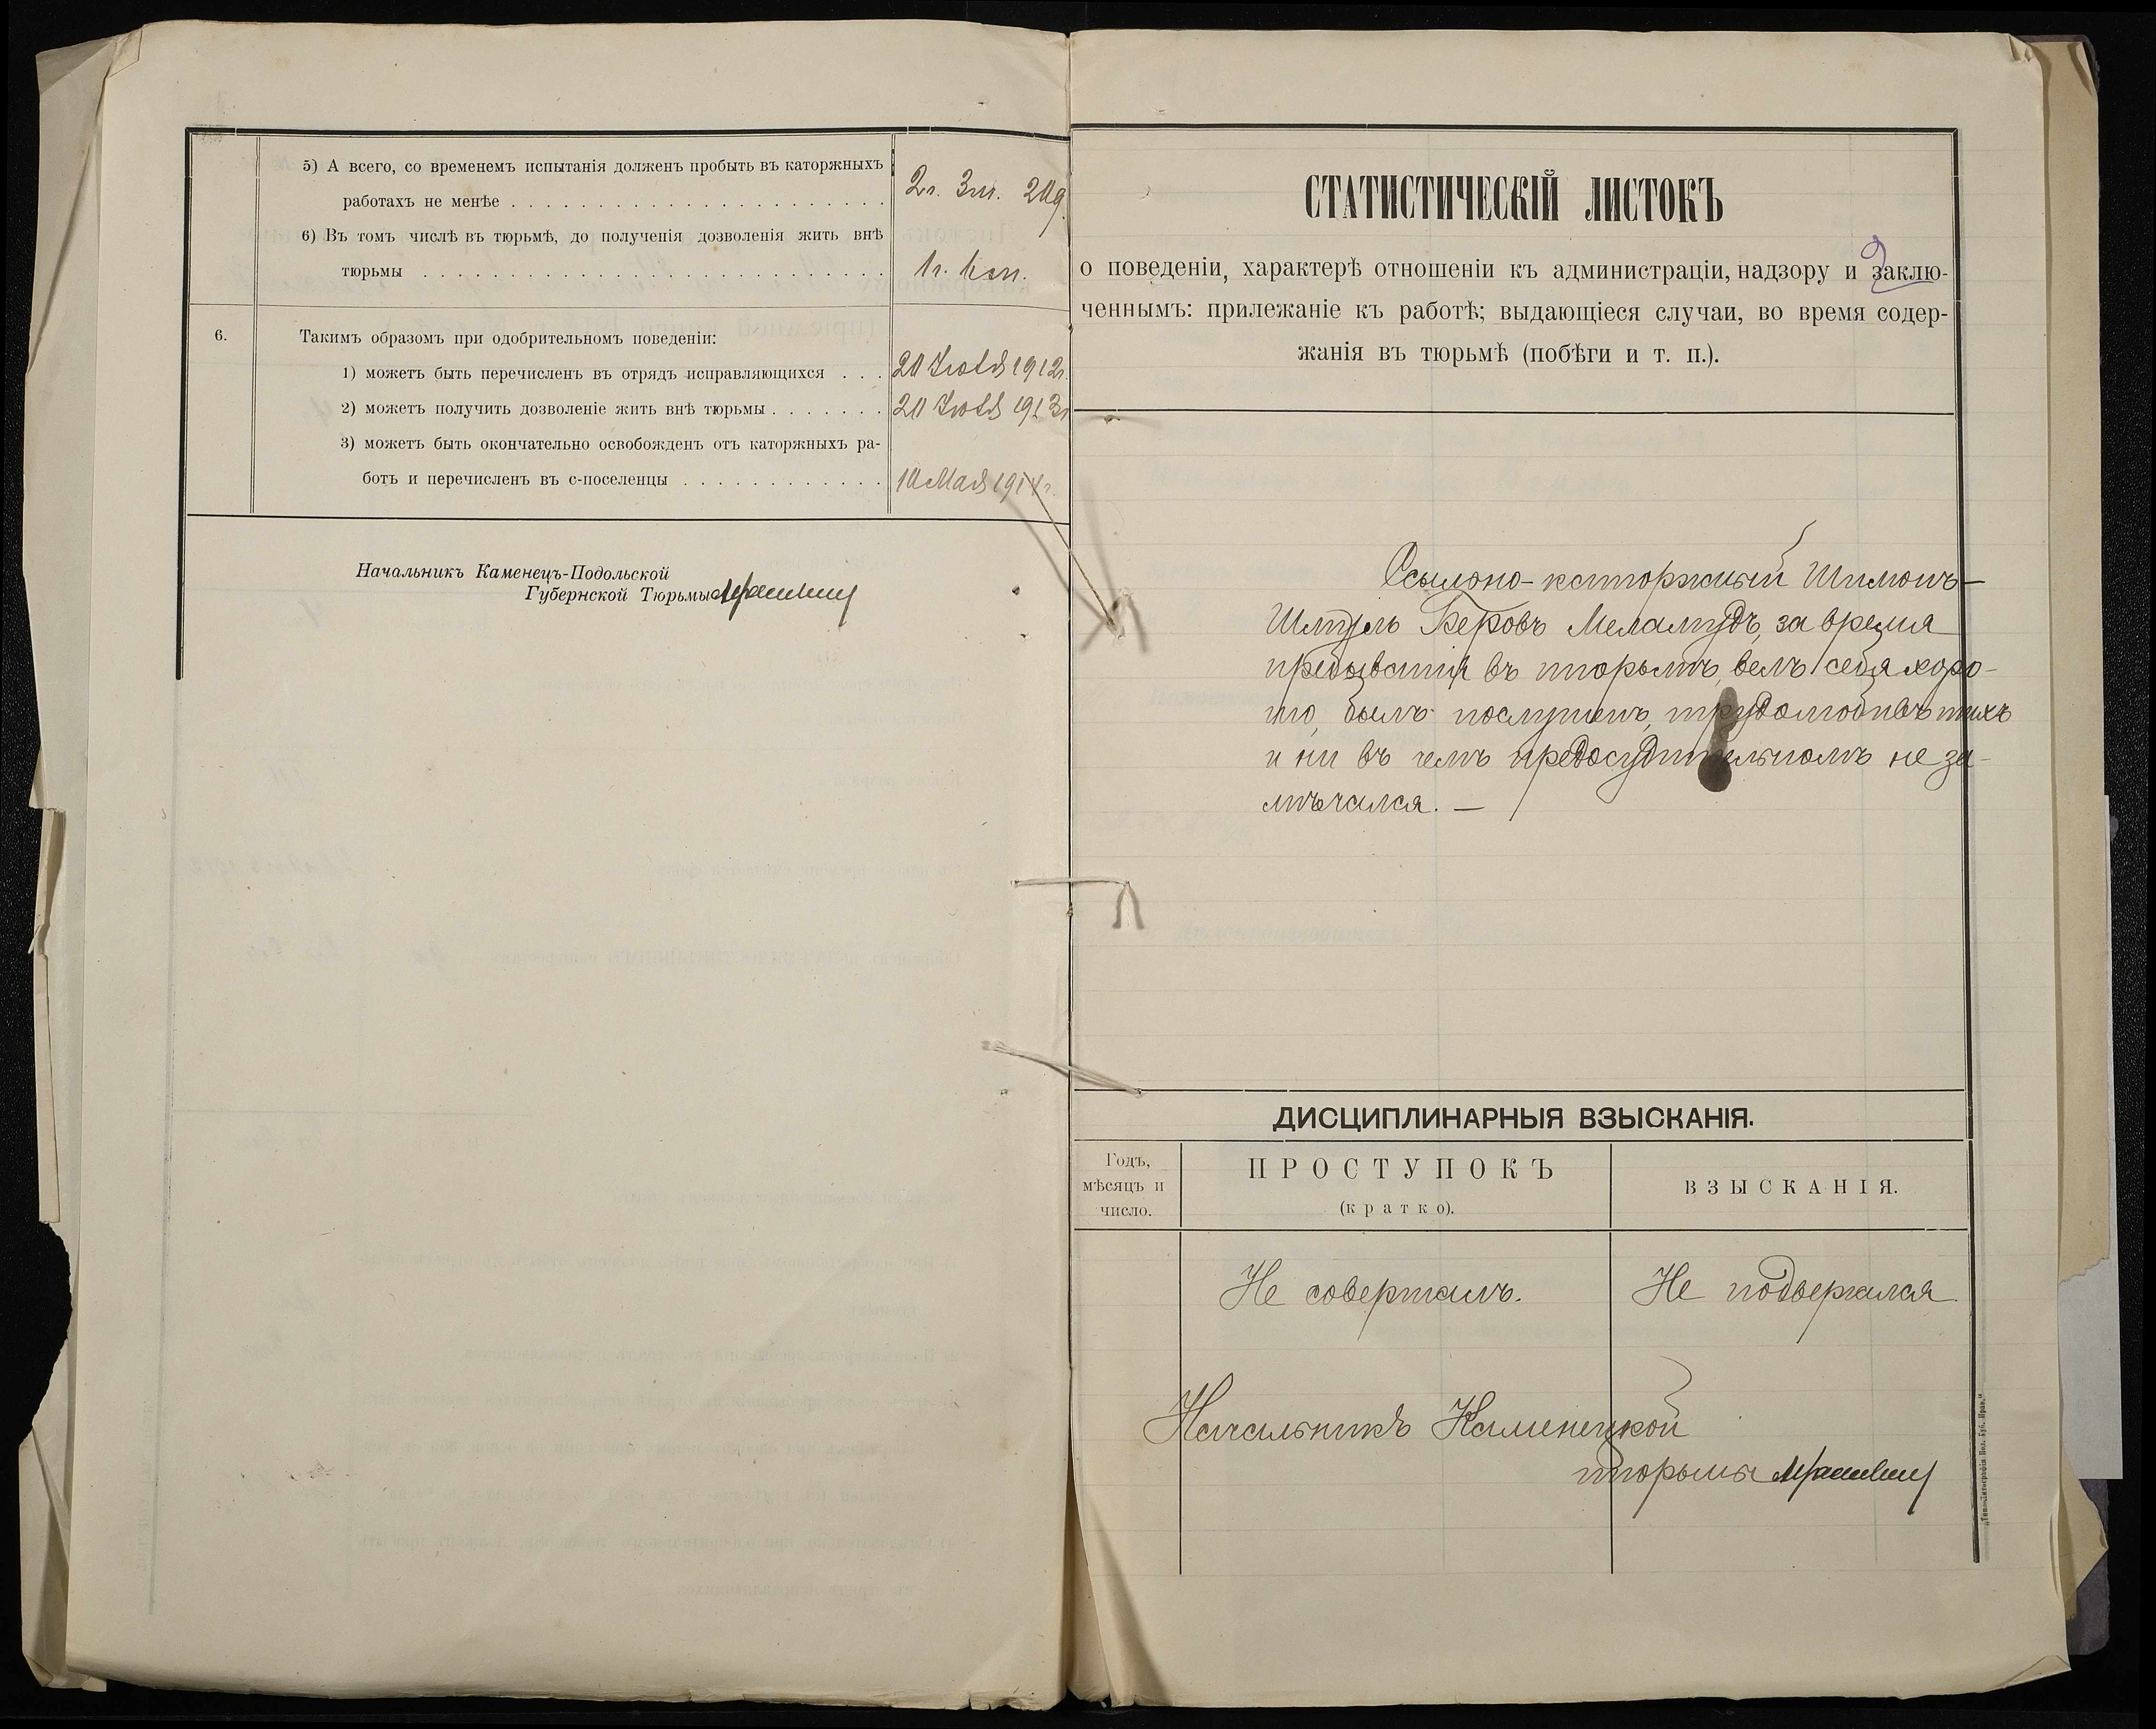 5) А всего, со временемъ испытанія долженъ пробыть въ каторжныхъ
работахъ не менѣе . . . . . . . . . . . . . . . . . . . . . . 2г. 3м. 20д.
6) Въ томъ числѣ въ тюрьмѣ, до полученія дозволенія жить внѣ
тюрьмы . . . . . . . . . . . . . . . . . . . . . . . . . . . 1г.
6. Такимъ образомъ при одобрительномъ поведеніи:
1) можетъ быть перечисленъ въ отрядъ исправляющихся . . . 20 Іюля 1912г.
2) можетъ получить дозволеніе жить внѣ тюрьмы . . . . . . . 20 Іюля 1913г
3) можетъ быть окончательно освобожденъ отъ каторжныхъ ра-
ботъ и перечисленъ въ с-поселенцы . . . . . . . . . . . . 10 Мая 1914г.
Начальникъ Каменецъ-Подольской
Губернской Тюрьмы
СТАТИСТИЧЕСКІЙ ЛИСТОКЪ
о поведеніи, характерѣ отношеніи къ администраціи, надзору и заклю-
ченнымъ: прилежаніе къ работѣ; выдающіеся случаи, во время содер-
жанія въ тюрьмѣ (побѣги и т. п.).
Ссыльно-каторжный Шимонъ-
Шмуль Беровъ Меламудъ, за время
пребыванія въ тюрьмѣ, велъ себя хоро-
шо, былъ послушенъ, трудолюбивъ тихъ
и ни въ чемъ предосудительномъ не за-
мѣчался. —
ДИСЦИПЛИНАРНЫЯ ВЗЫСКАНІЯ.
Годъ,
мѣсяцъ и
число.
ПРОСТУПОКЪ
(кратко).
ВЗЫСКАНІЯ.
Не совершалъ.
Не подвергался.
Начальникъ Каменецкой
тюрьмы
„Типо-литографія Под. Губ. Прав.“